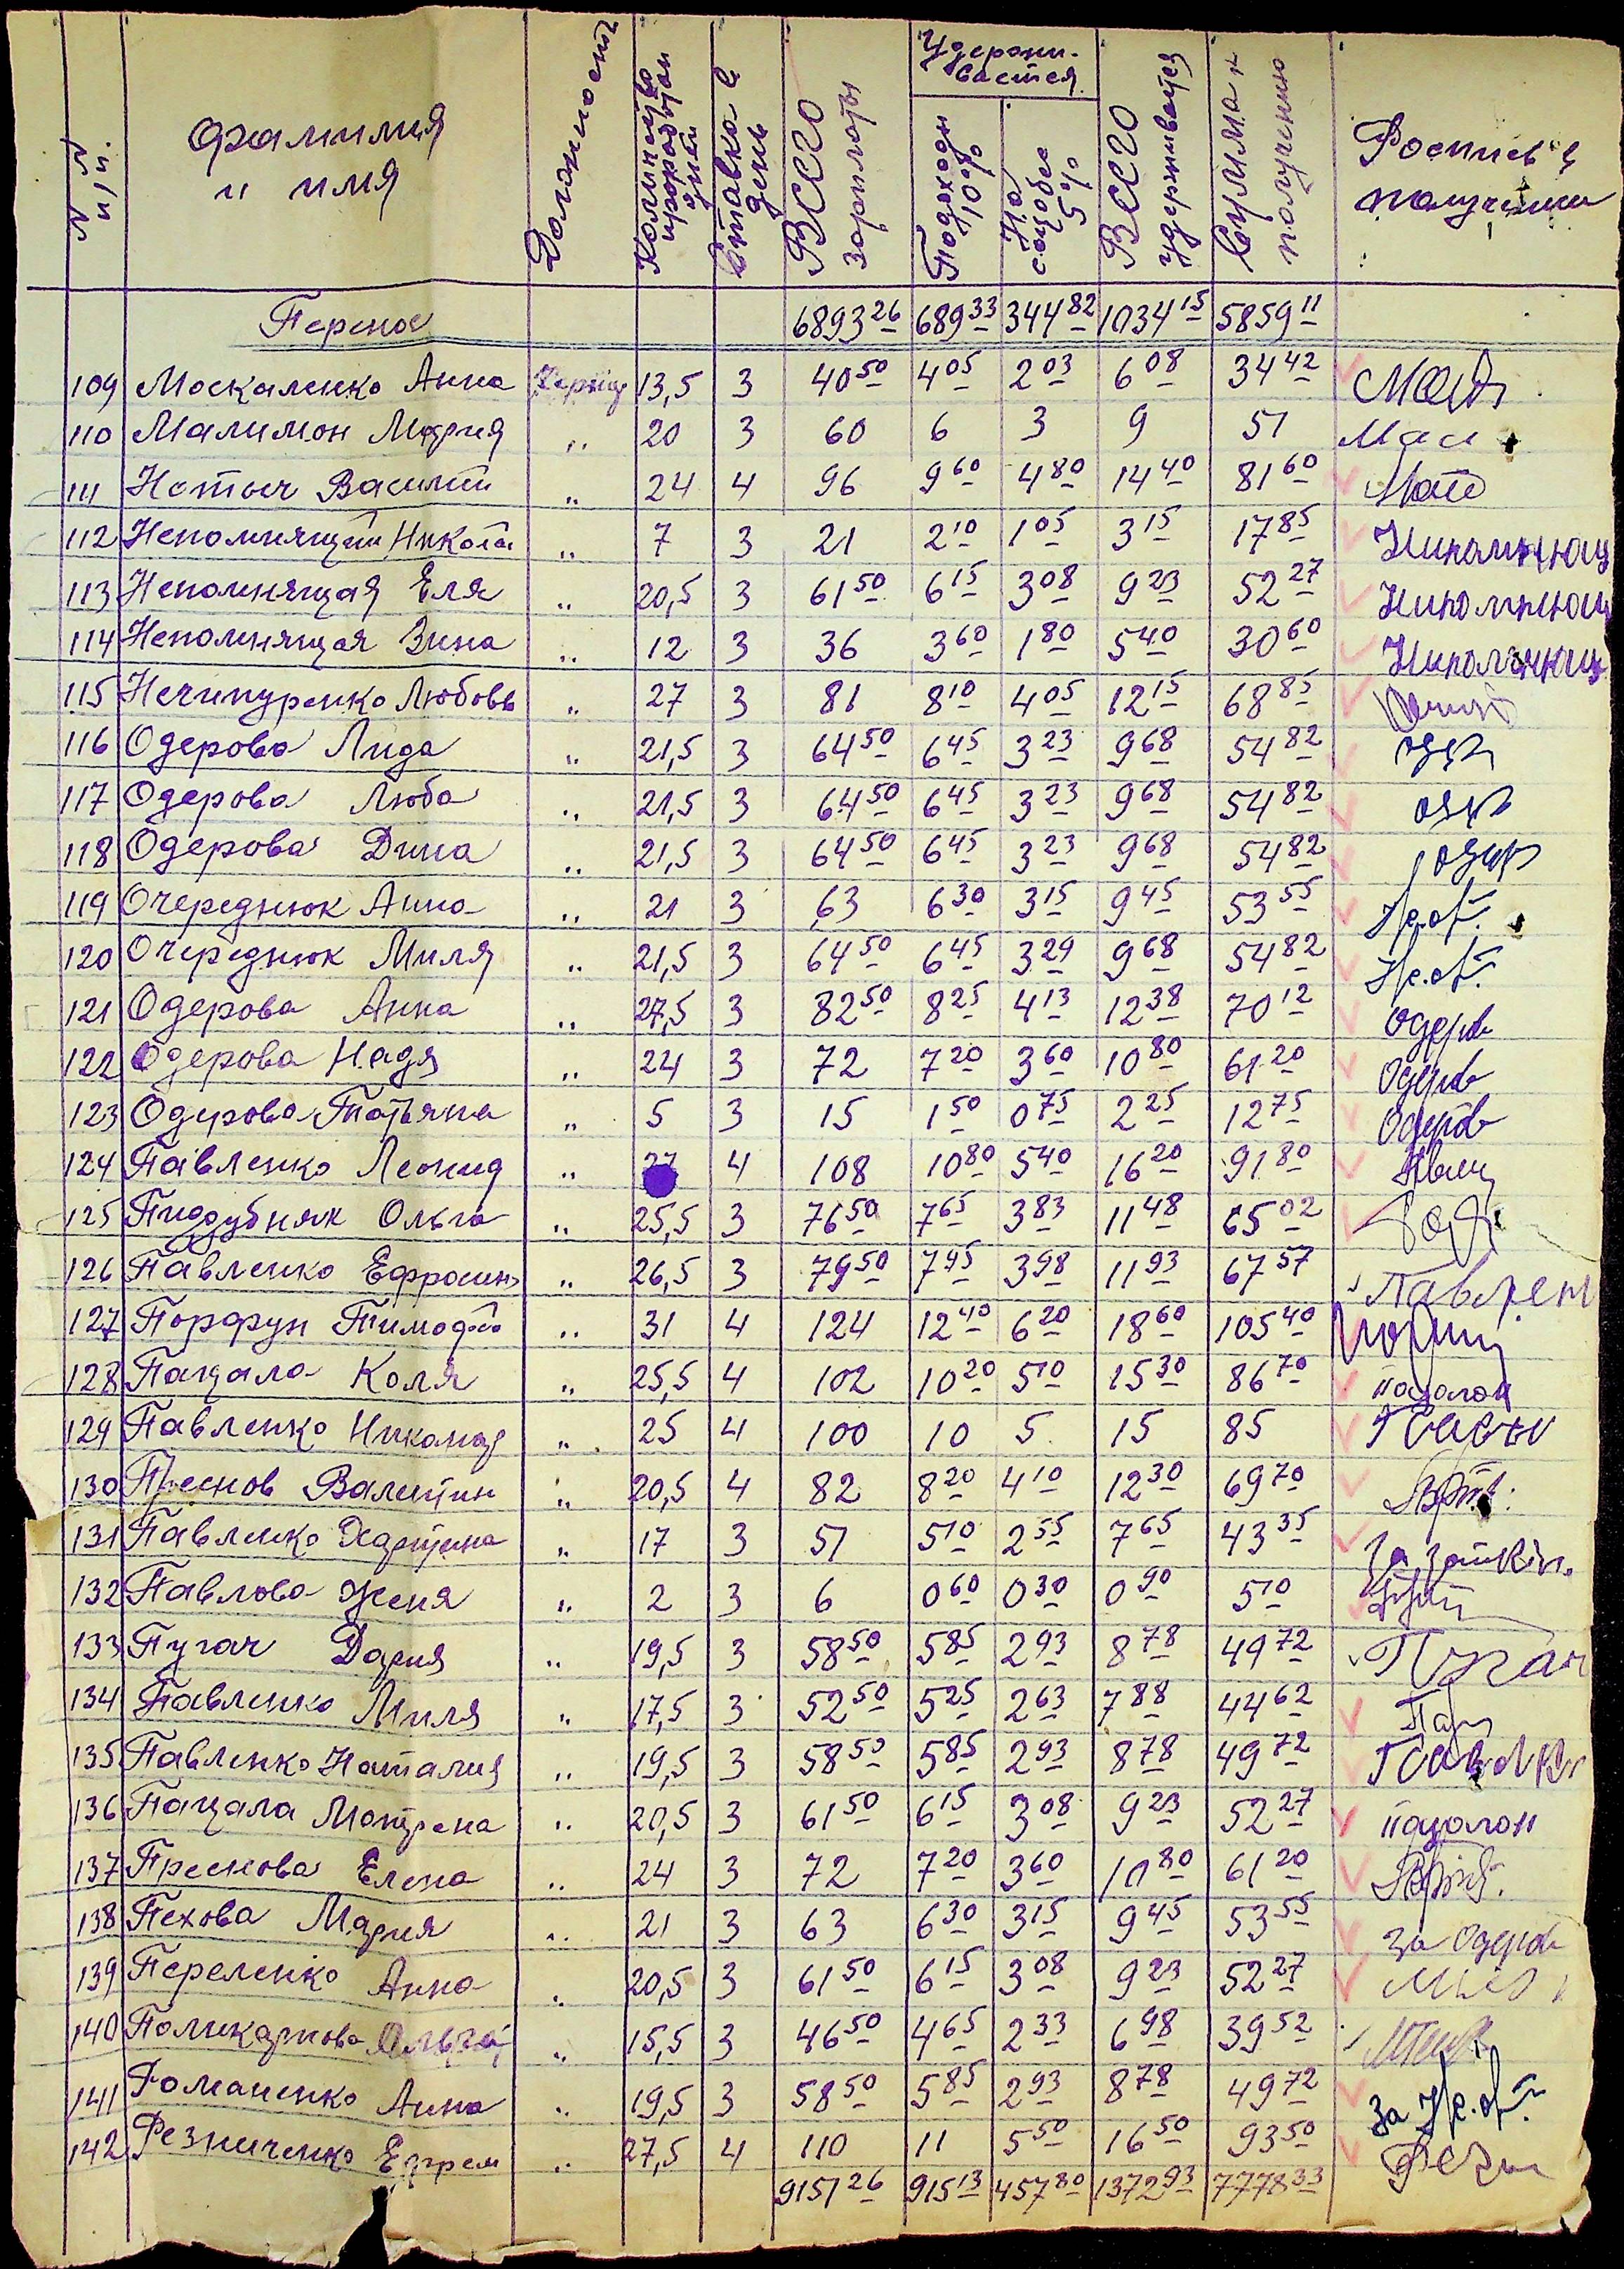 № № п/п. Фамилия и имя Должность Количество проработан дней Ставка в день Всего зарплаты Удерживается Подоходн 10% На соцобес 5% Всего удерживается Сумма к получению Роспись в получении
Перенос 6893 26 689 33 344 82 1034 15 5859 11
109 Москаленко Анна 13,5 3 40 50 4 05 2 03 6 08 34 42
110 Малимон Мария " 20 3 60 6 3 9 51 Мал
111 Нотыч Василий " 24 4 96 9 60 4 80 14 40 81 60
112 Непомнящий Николай " 7 3 21 2 10 1 05 3 15 17 85 Нипомнющ
113 Непомнящая Еля " 20,5 3 61 50 6 15 3 08 9 23 52 27 Нипомнющ
114 Непомнящая Зина " 12 3 36 3 60 1 80 5 40 30 60 Нипомнющ
115 Нечипуренко Любовь " 27 3 81 8 10 4 05 12 15 68 85
116 Одерова Лида " 21,5 3 64 50 6 45 3 23 9 68 54 82
117 Одерова Люба " 21,5 3 64 50 6 45 3 23 9 68 54 82
118 Одерова Дина " 21,5 3 64 50 6 45 3 23 9 68 54 82
119 Очереднюк Анна " 21 3 63 6 30 3 15 9 45 53 55
120 Очереднюк Миля " 21,5 3 64 50 6 45 3 29 9 68 54 82
121 Одерова Анна " 27,5 3 82 50 8 25 4 13 12 38 70 12 Одеров
122 Одерова Надя " 24 3 72 7 20 3 60 10 80 61 20 Одеров
123 Одерова Татьяна " 5 3 15 1 50 0 75 2 25 12 75 Одеров
124 Павленко Леонид " 27 4 108 10 80 5 40 16 20 91 80
125 Пиддубняк Ольга " 25,5 3 76 50 7 65 3 83 11 48 65 02
126 Павленко Ефросинь " 26,5 3 79 50 7 95 3 98 11 93 67 57
127 Порфун Тимофей " 31 4 124 12 40 6 20 18 60 105 40
128 Пацала Коля " 25,5 4 102 10 20 5 10 15 30 86 70 пацалои
129 Павленко Николай " 25 4 100 10 5 15 85
130 Преснов Валентин " 20,5 4 82 8 20 4 10 12 30 69 70
131 Павленко " 17 3 51 5 10 2 55 7 65 43 35 За
132 Павлова Женя " 2 3 6 0 60 0 30 0 90 5 10
133 Пугач Дария " 19,5 3 58 50 5 85 2 93 8 78 49 72 Пугач
134 Павленко Миля " 17,5 3 52 50 5 25 2 63 7 88 44 62
135 Павленко Наталия " 19,5 3 58 50 5 85 2 93 8 78 49 72
136 Пацала Мотрена " 20,5 3 61 50 6 15 3 08 9 23 52 27 пацалои
137 Преснова Елена " 24 3 72 7 20 3 60 10 80 61 20
138 Пехова Мария " 21 3 63 6 30 3 15 9 45 53 55 за Одеров
139 Переленко Анна " 20,5 3 61 50 6 15 3 08 9 23 52 27
140 Поликарпова Ольга " 15,5 3 46 50 4 65 2 33 6 98 39 52
141 Романенко Анна " 19,5 3 58 50 5 85 2 93 8 78 49 72 за
142 Резниченко Ефрем " 27,5 4 110 11 5 50 16 50 93 50 Резн
9151 26 915 13 457 80 1372 93 7778 33